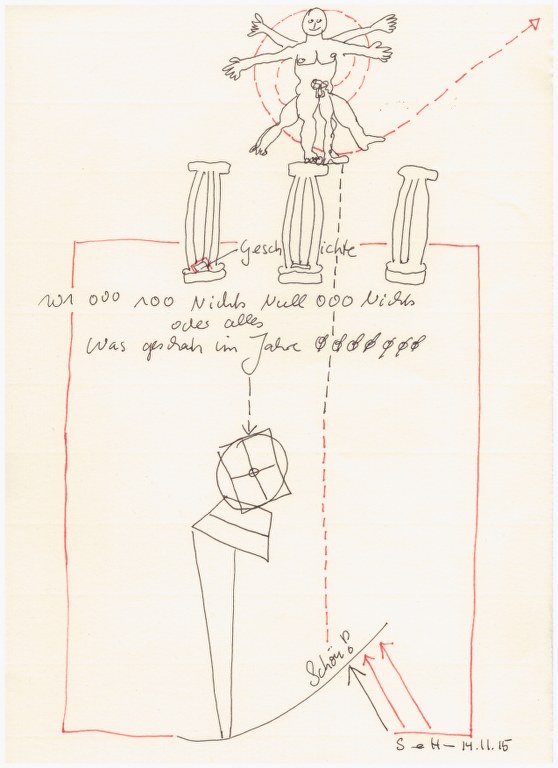 Geschichte
000 100 Nichts Null 000 Nichts
oder alles
Was geschah im Jahre ØØØØØØØ
Schön
S e H – 14.11.15